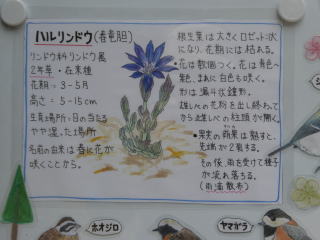 ハルリンドウ(春竜胆)
リンドウ科リンドウ属
2年草・在来種
花期=3-5月
高さ=5-15cm
生育場所=日の当たる
やや湿った場所
名前の由来は春に花が
咲くことから。
根生葉は大きくロゼット状
になり、花期には枯れる。
・花は数個つく。花は青色〜
紫色、まれに白色も咲く。
形は漏斗状鐘形。
雄しべの花粉を出し終わって
から雌しべの柱頭が開く。
・果実の蒴果は熟すと、
先端が2裂する。
その後、雨を受けて種子
が流れ落ちる。
(雨滴散布)
ホオジロ
ヤマガラ